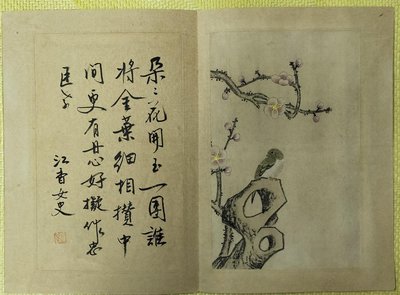 朶〻花開玉一團誰
將金葉細相攢中
間更有丹心好擬作忠
臣
江香女史